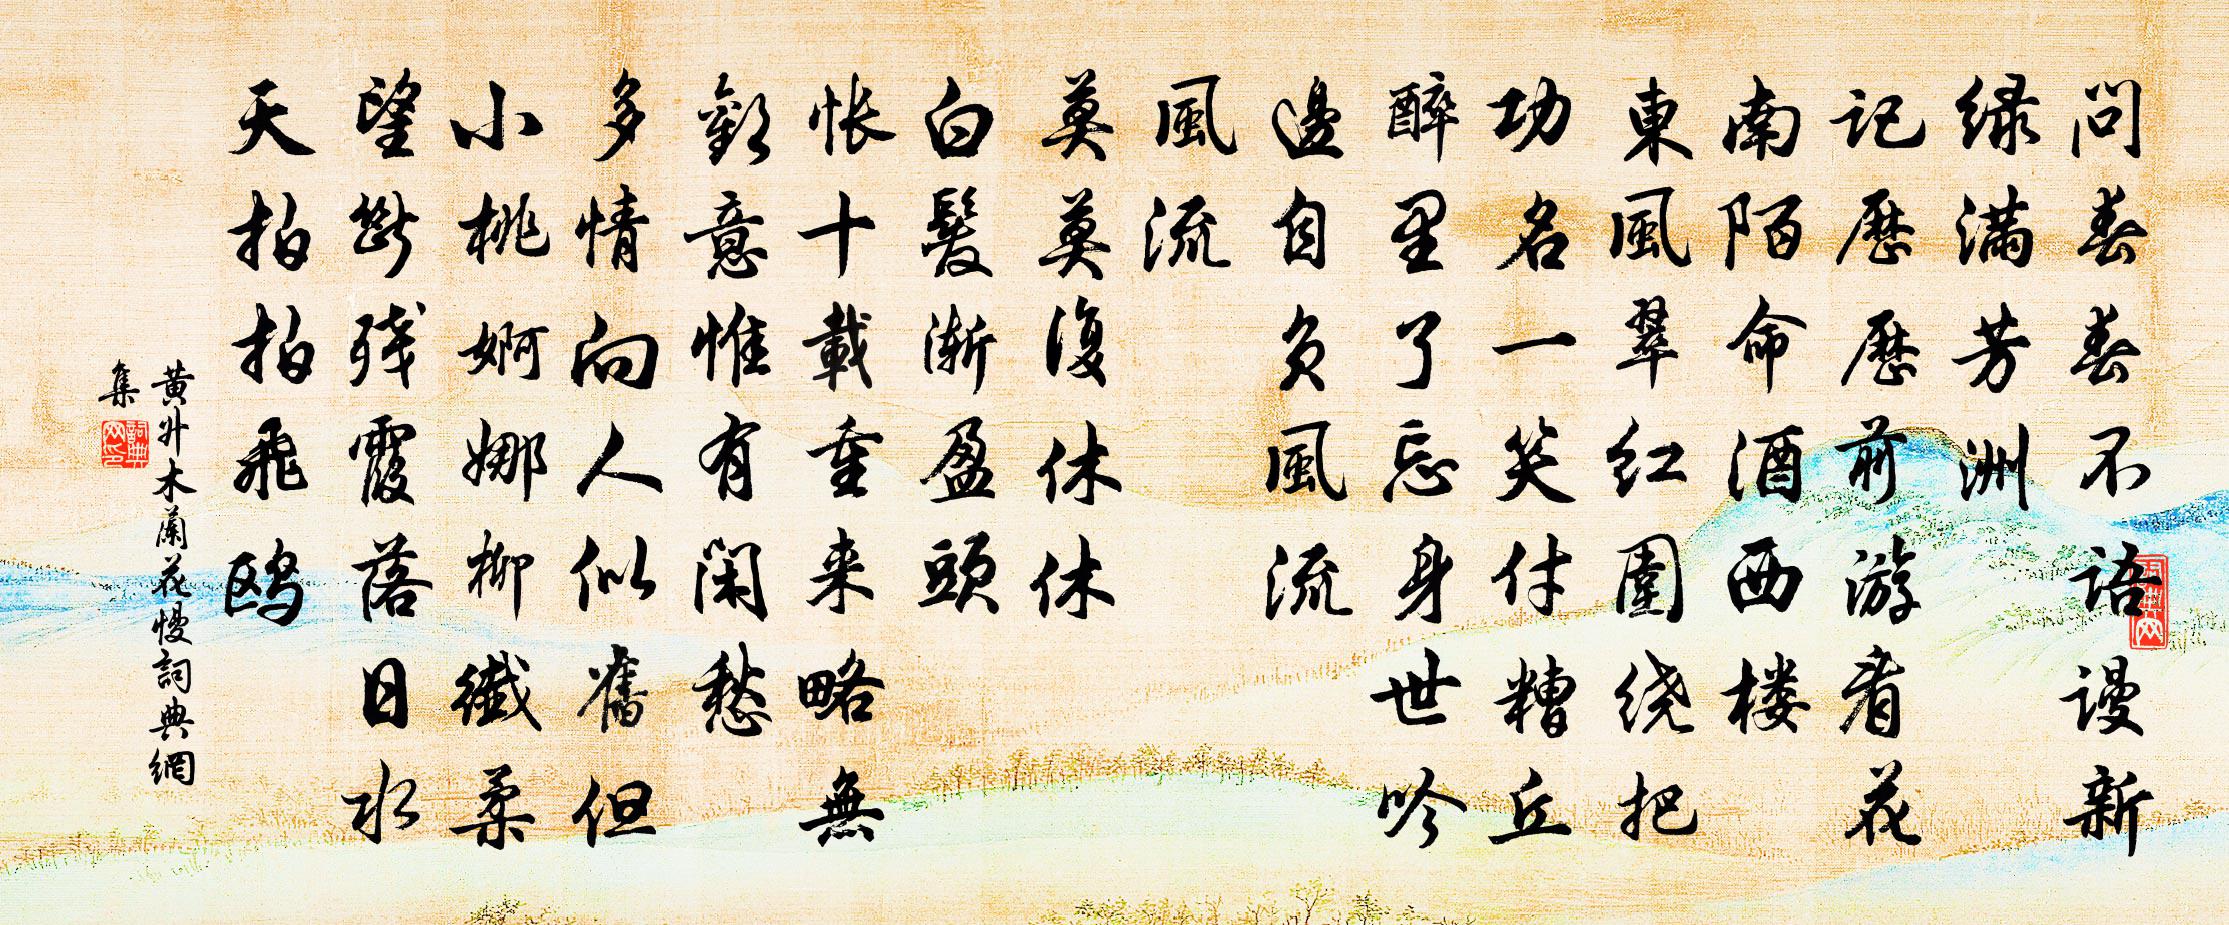 问春春不语谩新
绿满芳洲
记歷歷前游看花
南陌命酒西楼
東風翠红圍绕把
功名一笑付糟丘
醉里了忘身世吟
邊自负風流
風流
莫莫復休休
白髮渐盈頭
怅十載重来略無
歡意惟有闲愁
多情向人似舊但
小桃婀娜柳纖柔
望断残霞落日水
天拍拍飛鸥
黄升木蘭花慢詞典網
集